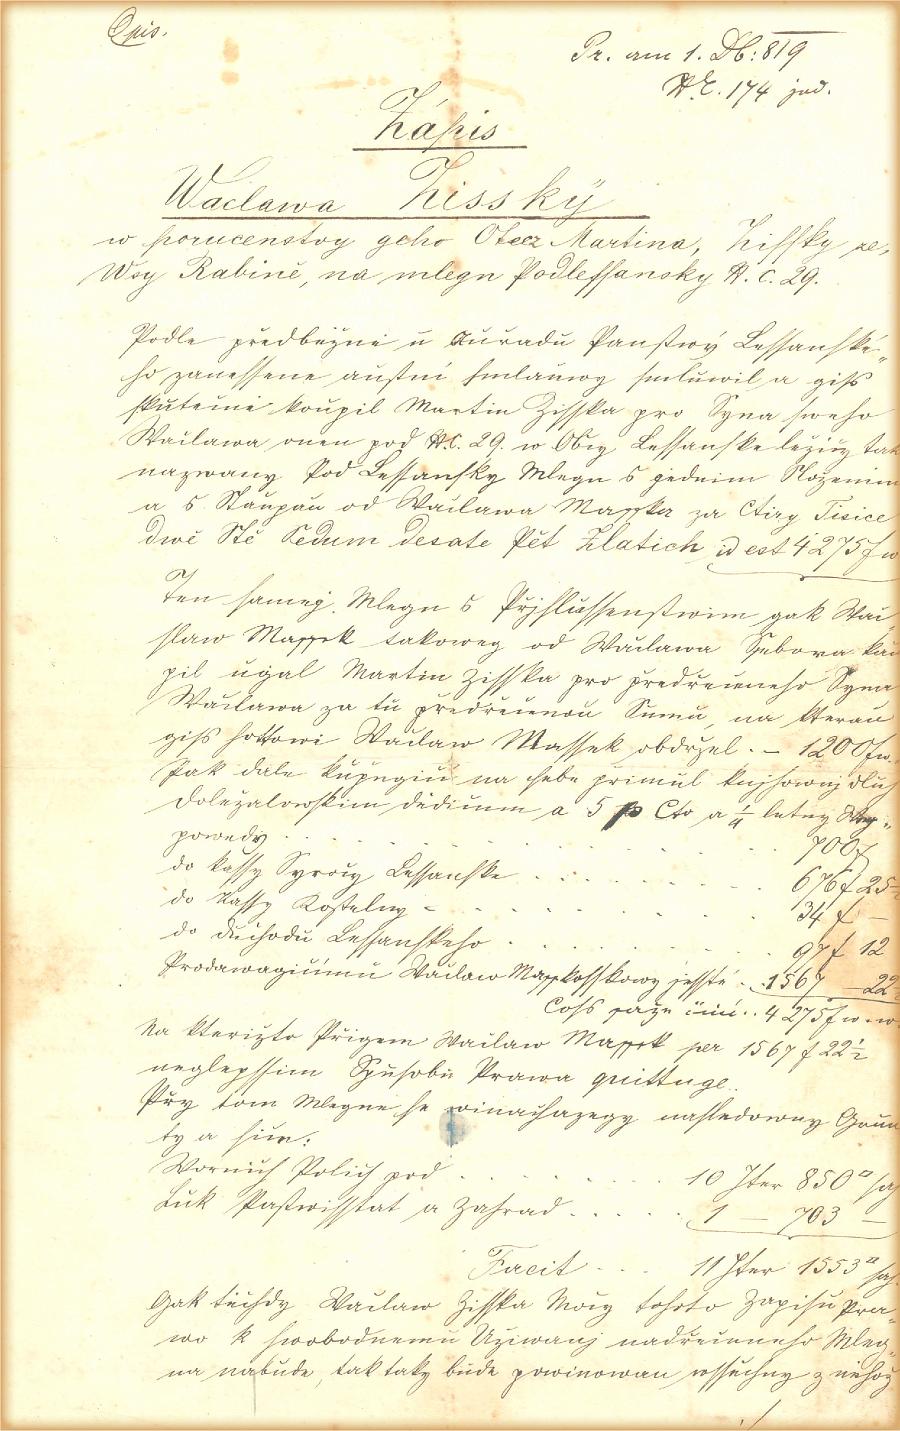 Opis.
Pr. am 1. Db: 819
N.C. 174 jud.
Zápis
Wáclawa Zisský
w porucenstwy geho Otecz Martina, Zissky ze,
Wsy Rabině, na mlegn Podlessansky N. C. 29.
Podle předběžně u Auřadu Panstwý Lessanské„
ho zanessene austní smlauwy smluwil a giss
skutečně koupil Martin Zisska pro Syna sweho
Wáclawa onen pod N.C. 29. w Obcy Lessanske ležicý tak
nazwany Pod Lessanský Mlegn s gedním Složením
a 5 Staupau od Wáclawa Masska za Ctiry Tisíce
dwě Stě Sedum desate Pět Zlatich id est 4275 f w
Ten samej Mlegn s Přjslussenstwim gak Wác
slaw Massek takoweg od Wáclawa Sebora kau
pil ugal Martin Zisska pro předřečeneho Syna
Wáclawa za tu předřečenou Sumu, na kterau
giss hottowi Waclaw Massek obdržel. – 1200 f w.
Pak dale kupugicý na sebe přimul knjhownj dluh
Doležalowskim dědicum a 5 p Cto a ¼ letny Wey„
powedy . . . 700 f
do kassy Syročy Lessanske . . . 676 f 25½
do Kassy Kostelny – . . . 34 f –
do duchodu Lessanskeho . . . 97 f 12
Prodawagicýmu Wáclaw Masskosskowy jesstě . . 1567 – 22½
Coss paze činí . . 4275 f w. w.
Na kterižto Přigem Waclaw Massek per 1567 f 22½
neglepssim Spusobu Prawa quittuge.
Při tom Mlegne se winachazegy nasledowny Grun
ty a sice:
Wornich Polich pod . . . 10 Jter 850 □ sah
Luk Pastwisstat a Zahrad . . . 1 – 703 –
Facit . . . 11 Jter 1553 □ sah.
Gak tuchdy Wáclaw Zisska Mocy tohoto Zapisu Pra„
wo k swobodnemu Užiwanj nadřečeneho Mleg„
na nabude, tak taky bude powinowan wssechny z něhož
./.